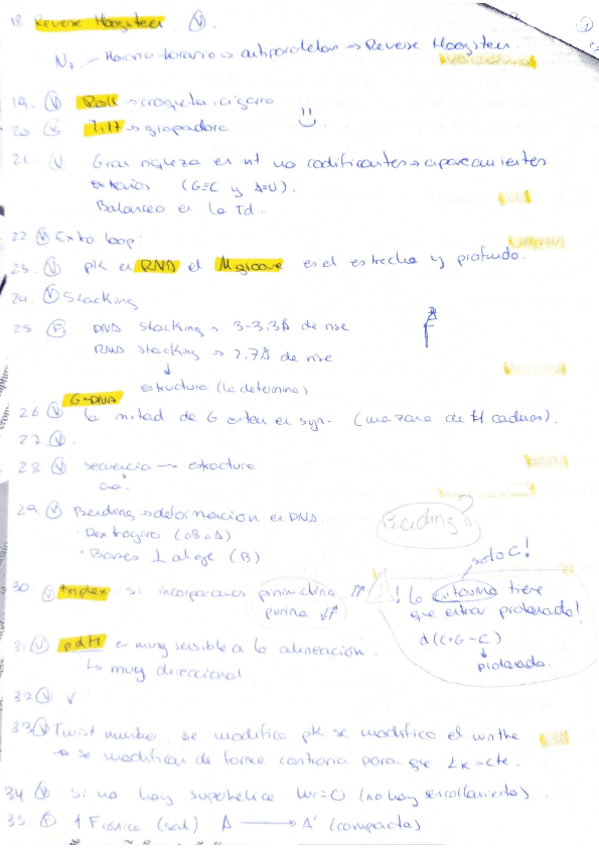 18 Reverse Hoogsteen (V).
N7 - Horario-horario → antiparalelas → Reverse Hoogsteen.
19. (V) Roll → croqueta, cigarro
20. (V) Tilt → grapadora
21. (V) Gran riqueza en nt no codificantes → apareamientos
(G≡C y A=U).
Balanceo en la Td...
22 (V) Exto loop:
23. (V) pk en RNA el M groove es el estrecho y profundo.
24. (V) Stacking
25 (F) DNA stacking → 3-3.3Å de rise
RNA stacking → 2.7Å de rise
↓
estructura (lo determina)
G-DNA
26 (V) la mitad de G están en syn- (4 cadenas).
27 (V).
28. (V) secuencia → estructura
29. (V) Bending → deformación en DNA.
· Dextrogiro (oB o A)
· Bases ⊥ al eje (B)
Bending?
solo C!
30. (V) triplex: si incorporamos pirimidina ↑↑
purina ↓↑
! la citosina tiene
que entrar protonada!
d(C·G-C)
↓
protonada.
31. (V) pdH es muy sensible a la alineación.
↳ muy direccional
32 (V) v
33 (V) Twist number, se modifica pk se modifica el writhe
→ se modifican de forma contraria para que Lk = cte.
34 (V) si no hay superhélice Wr=0 (no hay enrollamiento).
35. (V) ↑ F iónica (sal) A → A' (compacta)